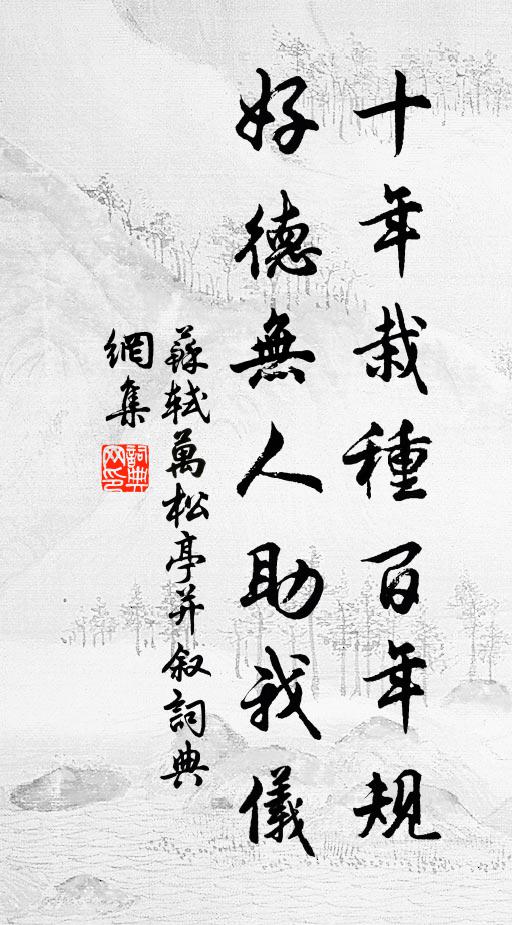 十年栽種百年規
好德無人助我儀
蘇軾萬松亭并敘詞典
網集
詞典
网印